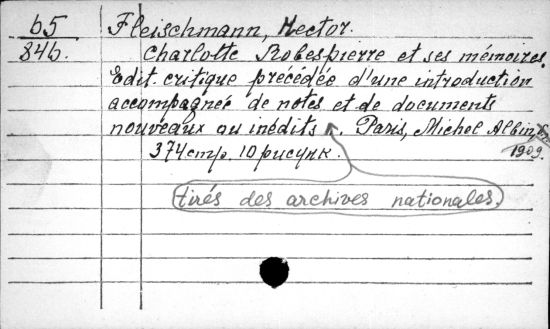 b5 Fleischmann, Hector.
84b. Charlotte Robespierre et ses mémoires.
Edit. critique précédée d'une introduction
accompagnée de notes et de documents
nouveaux ou inédits. Paris, Michel Albin,
1909.
374 стр. 10 рисунк.
tirés des archives nationales.